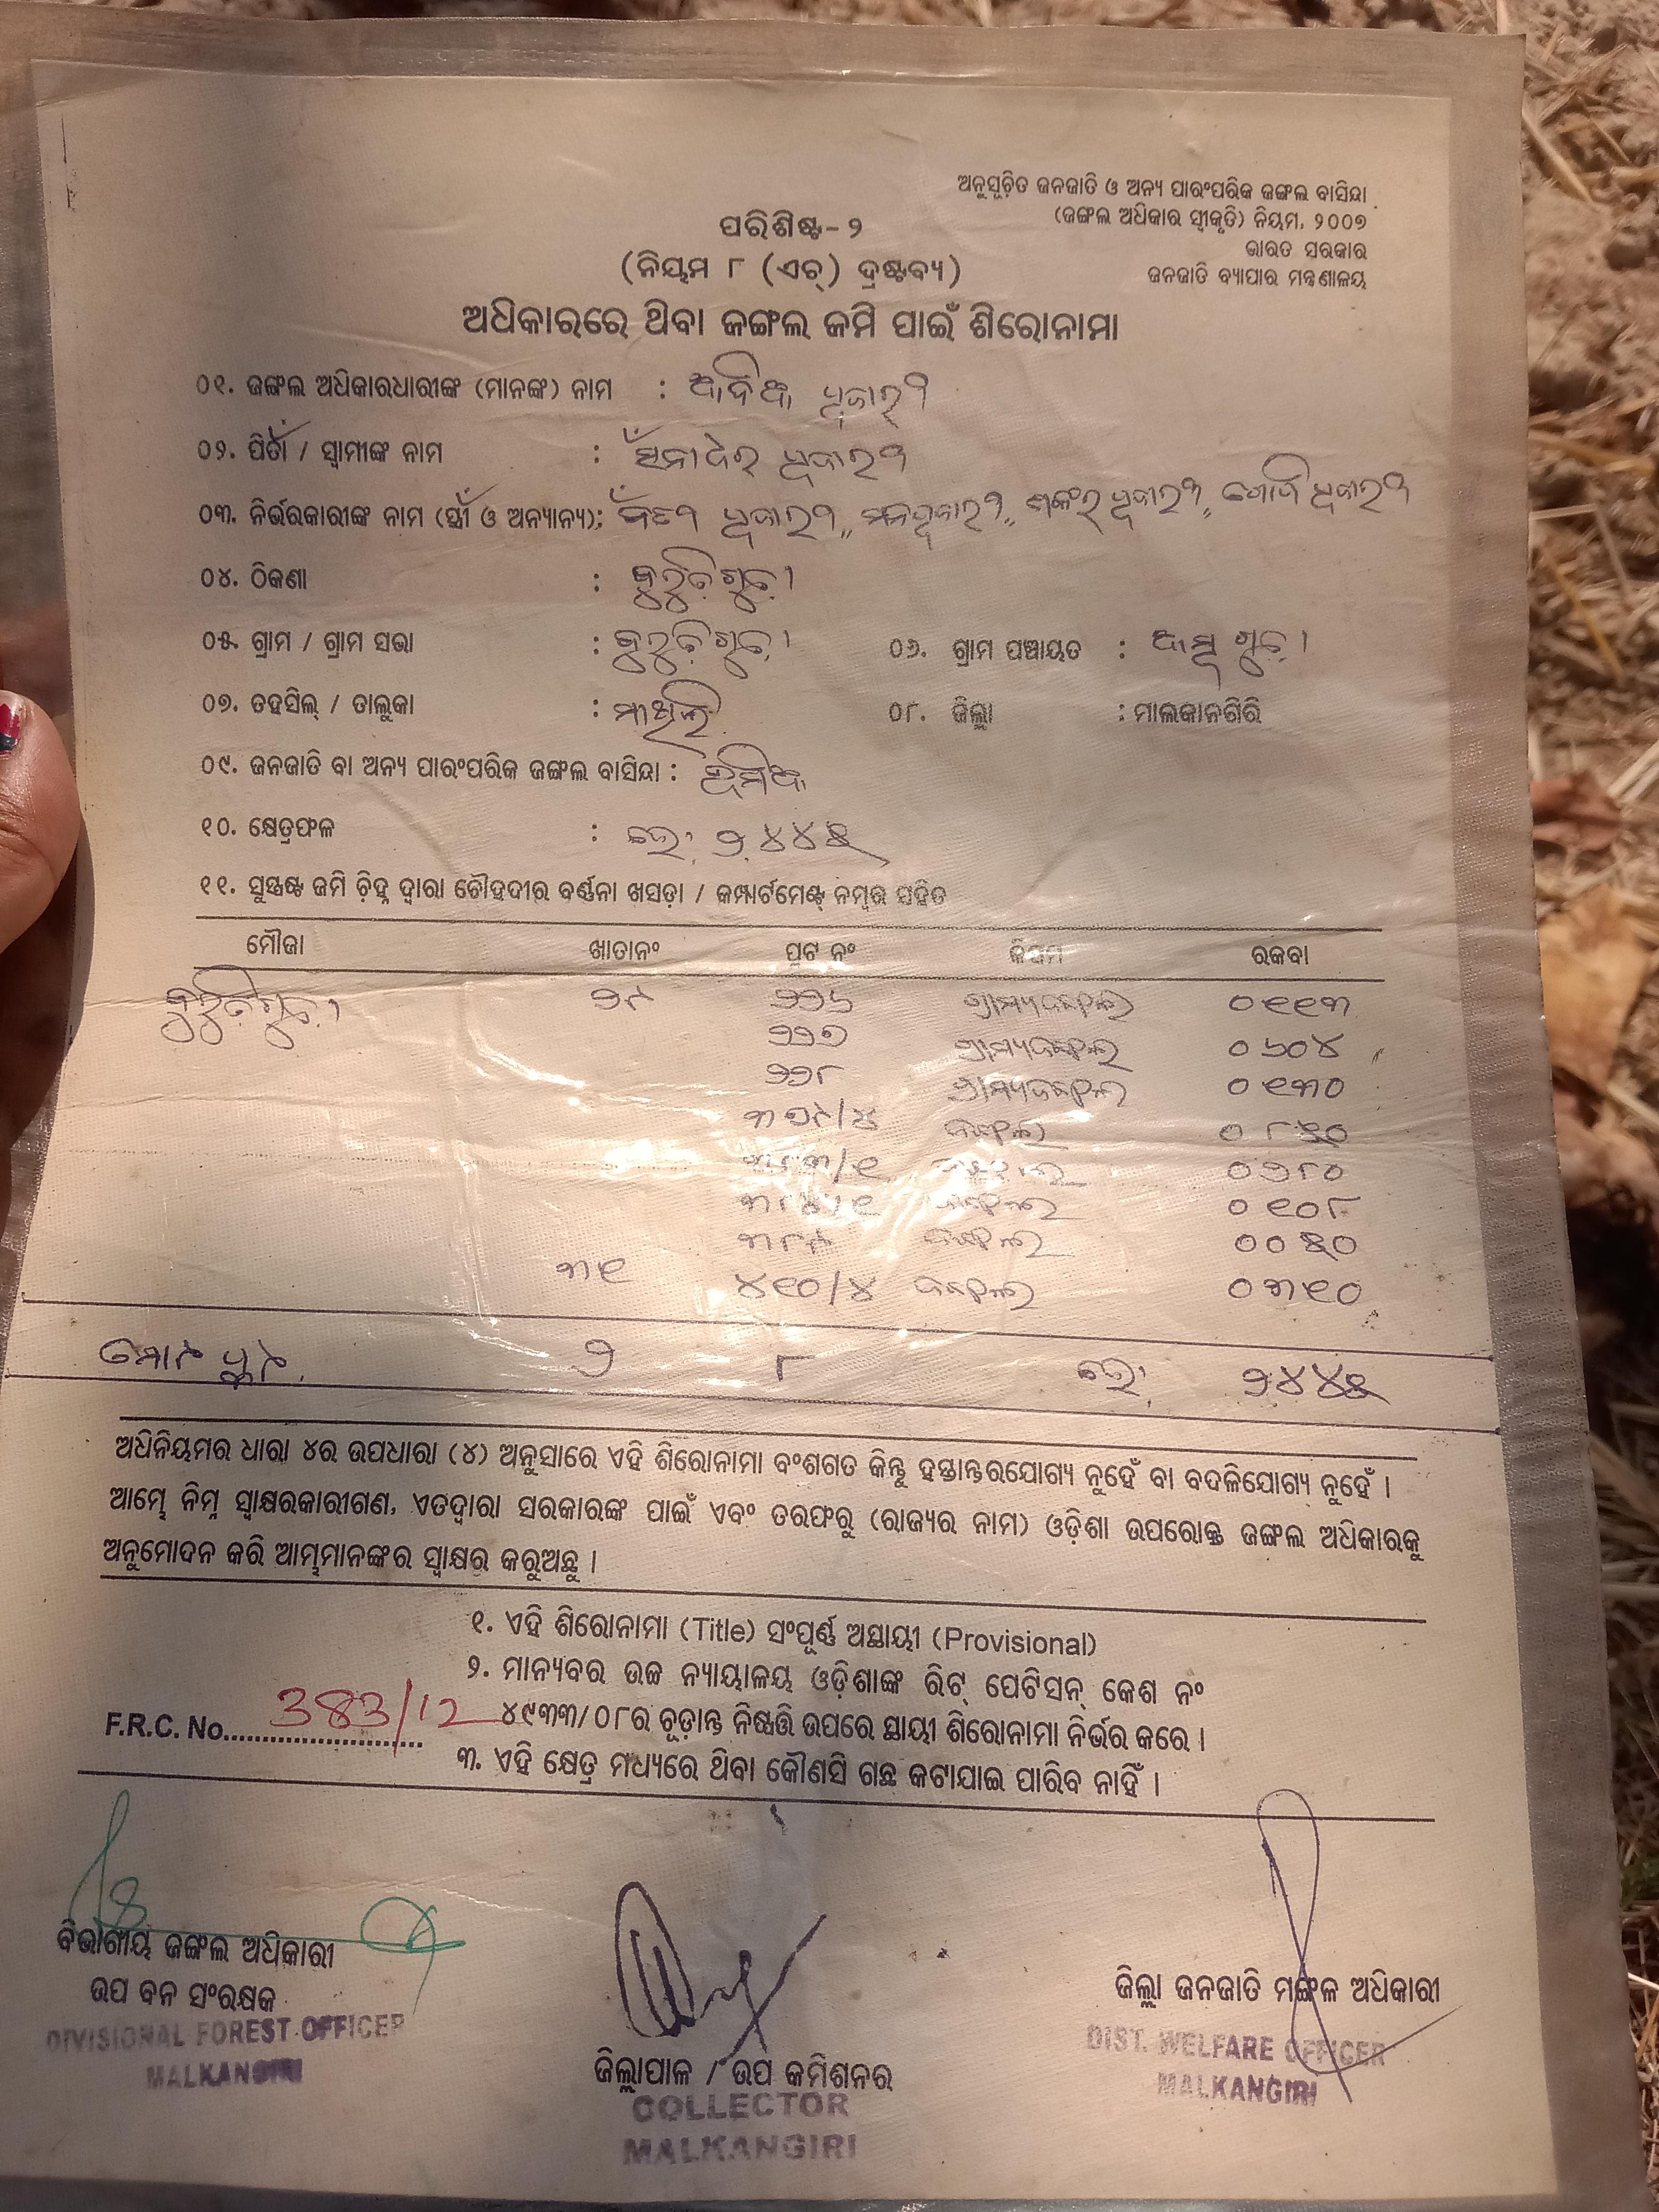 ଅନୁସୂଚିତ ଜନଜାତି ଓ ଅନ୍ୟ ପାରଂପରିକ ଜଙ୍ଗଲ ବାସିନ୍ଦା
(ଜଙ୍ଗଲ ଅଧିକାର ସ୍ୱୀକୃତି) ନିୟମ, ୨୦୦୭
ଭାରତ ସରକାର
ଜନଜାତି ବ୍ୟାପାର ମନ୍ତ୍ରଣାଳୟ
ପରିଶିଷ୍ଟ-୨
(ନିୟମ ୮ (ଏଚ୍) ଦ୍ରଷ୍ଟବ୍ୟ)
ଅଧିକାରରେ ଥିବା ଜଙ୍ଗଲ ଜମି ପାଇଁ ଶିରୋନାମା
୦୧. ଜଙ୍ଗଲ ଅଧିକାରଧାରୀଙ୍କ (ମାନଙ୍କ) ନାମ :
୦୨. ପିତା / ସ୍ୱାମୀଙ୍କ ନାମ :
୦୩. ନିର୍ଭରକାରୀଙ୍କ ନାମ (ସ୍ତ୍ରୀ ଓ ଅନ୍ୟାନ୍ୟ):
୦୪. ଠିକଣା :
୦୫. ଗ୍ରାମ / ଗ୍ରାମ ସଭା : ୦୬. ଗ୍ରାମ ପଞ୍ଚାୟତ :
୦୭. ତହସିଲ୍ / ତାଲୁକା : ମାଥିଲି ୦୮. ଜିଲ୍ଲା : ମାଲକାନଗିରି
୦୯. ଜନଜାତି ବା ଅନ୍ୟ ପାରଂପରିକ ଜଙ୍ଗଲ ବାସିନ୍ଦା : ଭୂମିଆ
୧୦. କ୍ଷେତ୍ରଫଳ : ହେ. ୨.୪୪୫
୧୧. ସୁସ୍ପଷ୍ଟ ଜମି ଚିହ୍ନ ଦ୍ୱାରା ଚୌହଦୀର ବର୍ଣ୍ଣନା ଖସଡ଼ା / କମ୍ପାର୍ଟମେଣ୍ଟ୍ ନମ୍ବର ସହିତ
ମୌଜା ଖାତାନଂ ପ୍ଲଟ ନଂ କିସମ ରକବା
୨୯ ୨୨୬ ଗ୍ରାମ୍ୟଜଙ୍ଗଲ ୦ ୧୧୩
୨୨୭ ଗ୍ରାମ୍ୟଜଙ୍ଗଲ ୦ ୬୦୪
୨୨୮ ଗ୍ରାମ୍ୟଜଙ୍ଗଲ ୦ ୧୩୦
ଜଙ୍ଗଲ ୦ ୮୫୦
ଜଙ୍ଗଲ ୦ ୨୮୦
ଜଙ୍ଗଲ ୦ ୧୦୮
ଜଙ୍ଗଲ ୦ ୦୫୦
୩୧ ୪୧୦/୪ ଜଙ୍ଗଲ ୦ ୩୧୦
ମୋଟ ପ୍ଲଟ ୨ ୮ ହେ. ୨.୪୪୫
ଅଧିନିୟମର ଧାରା ୪ର ଉପଧାରା (୪) ଅନୁସାରେ ଏହି ଶିରୋନାମା ବଂଶଗତ କିନ୍ତୁ ହସ୍ତାନ୍ତରଯୋଗ୍ୟ ନୁହେଁ ବା ବଦଳିଯୋଗ୍ୟ ନୁହେଁ ।
ଆମ୍ଭେ ନିମ୍ନ ସ୍ୱାକ୍ଷରକାରୀଗଣ, ଏତଦ୍ୱାରା ସରକାରଙ୍କ ପାଇଁ ଏବଂ ତରଫରୁ (ରାଜ୍ୟର ନାମ) ଓଡ଼ିଶା ଉପରୋକ୍ତ ଜଙ୍ଗଲ ଅଧିକାରକୁ
ଅନୁମୋଦନ କରି ଆମ୍ଭମାନଙ୍କର ସ୍ୱାକ୍ଷର କରୁଅଛୁ ।
୧. ଏହି ଶିରୋନାମା (Title) ସଂପୂର୍ଣ୍ଣ ଅସ୍ଥାୟୀ (Provisional)
୨. ମାନ୍ୟବର ଉଚ୍ଚ ନ୍ୟାୟାଳୟ ଓଡ଼ିଶାଙ୍କ ରିଟ୍ ପେଟିସନ୍ କେଶ ନଂ
୪୯୩୩/୦୮ର ଚୂଡ଼ାନ୍ତ ନିଷ୍ପତ୍ତି ଉପରେ ସ୍ଥାୟୀ ଶିରୋନାମା ନିର୍ଭର କରେ ।
F.R.C. No. 383/12
୩. ଏହି କ୍ଷେତ୍ର ମଧ୍ୟରେ ଥିବା କୌଣସି ଗଛ କଟାଯାଇ ପାରିବ ନାହିଁ ।
ବିଭାଗୀୟ ଜଙ୍ଗଲ ଅଧିକାରୀ
ଉପ ବନ ସଂରକ୍ଷକ
DIVISIONAL FOREST OFFICER
MALKANGIRI
ଜିଲ୍ଲାପାଳ / ଉପ କମିଶନର
COLLECTOR
MALKANGIRI
ଜିଲ୍ଲା ଜନଜାତି ମଙ୍ଗଳ ଅଧିକାରୀ
DIST. WELFARE OFFICER
MALKANGIRI